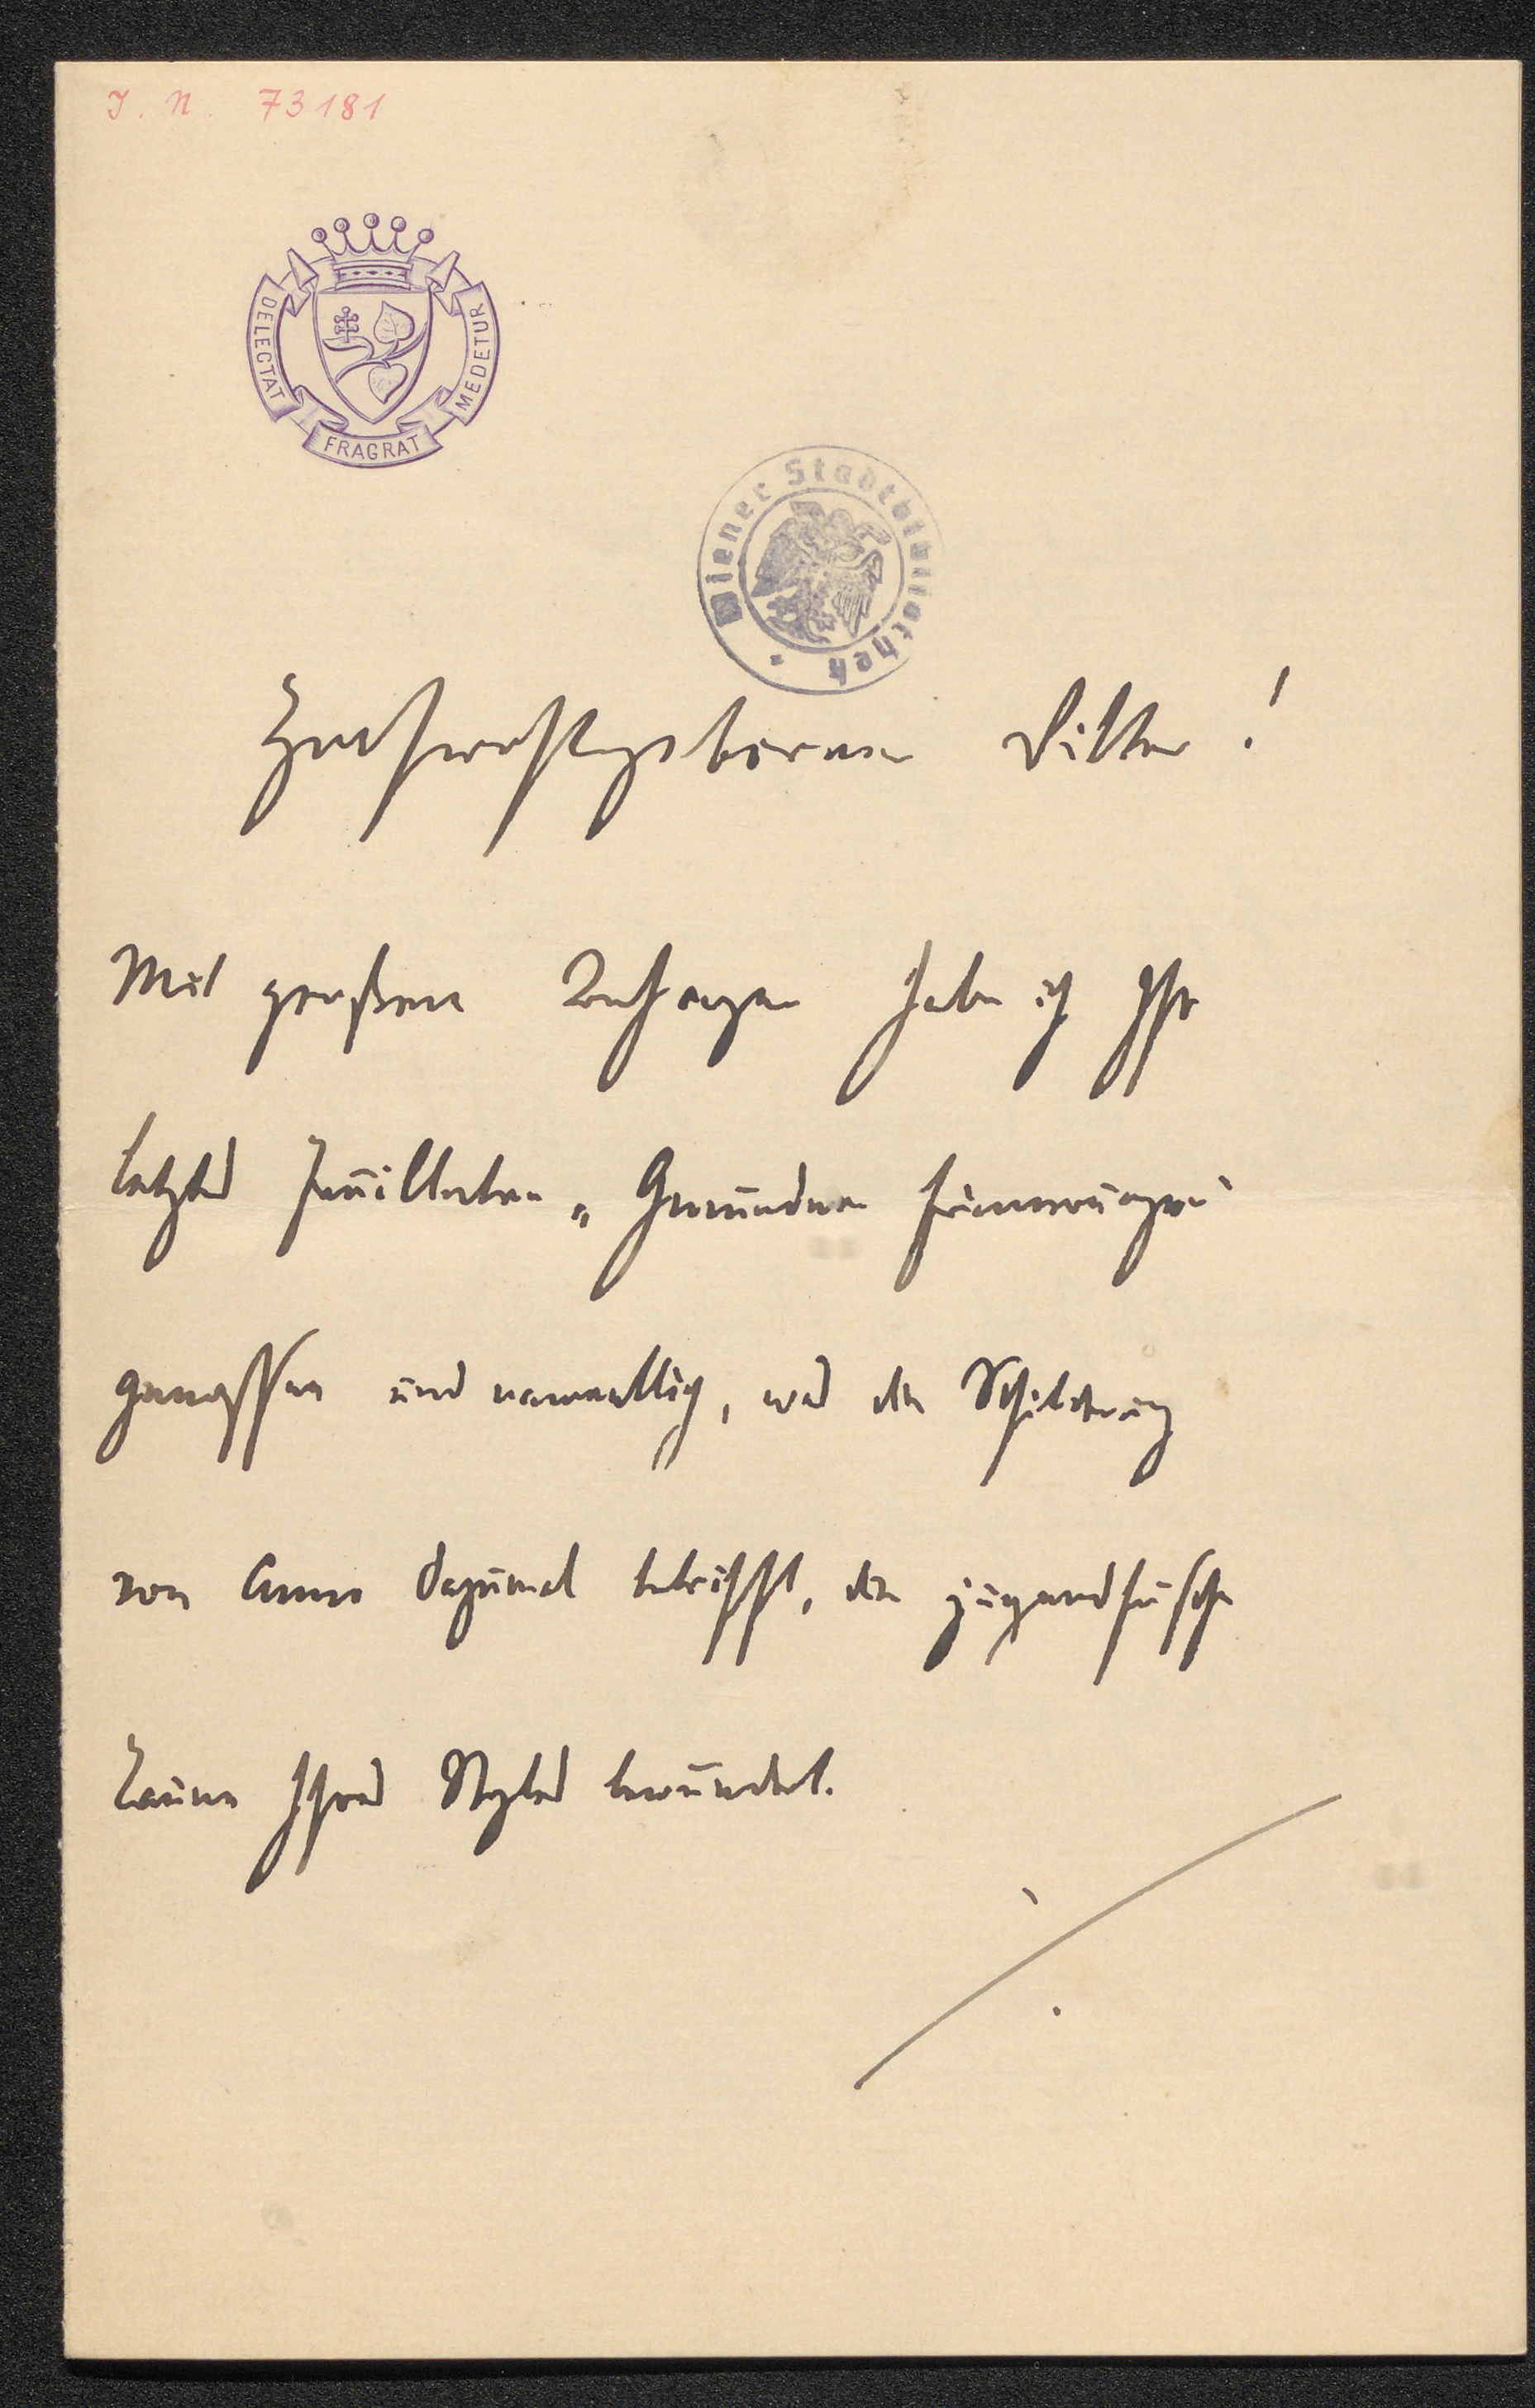 J. N. 73181
DELECTAT
FRAGRAT
MEDETUR
Wiener Stadtbibliothek
Hochwohlgeborener Ritter!
Mit großem Behagen habe ich Ihr
letztes Feuilleton „Gmundner Erinnerungen“
genossen und namentlich, was die Schilderung
von Anno dazumal betrifft, die jugendfrische
Laune Ihres Styles bewundert.